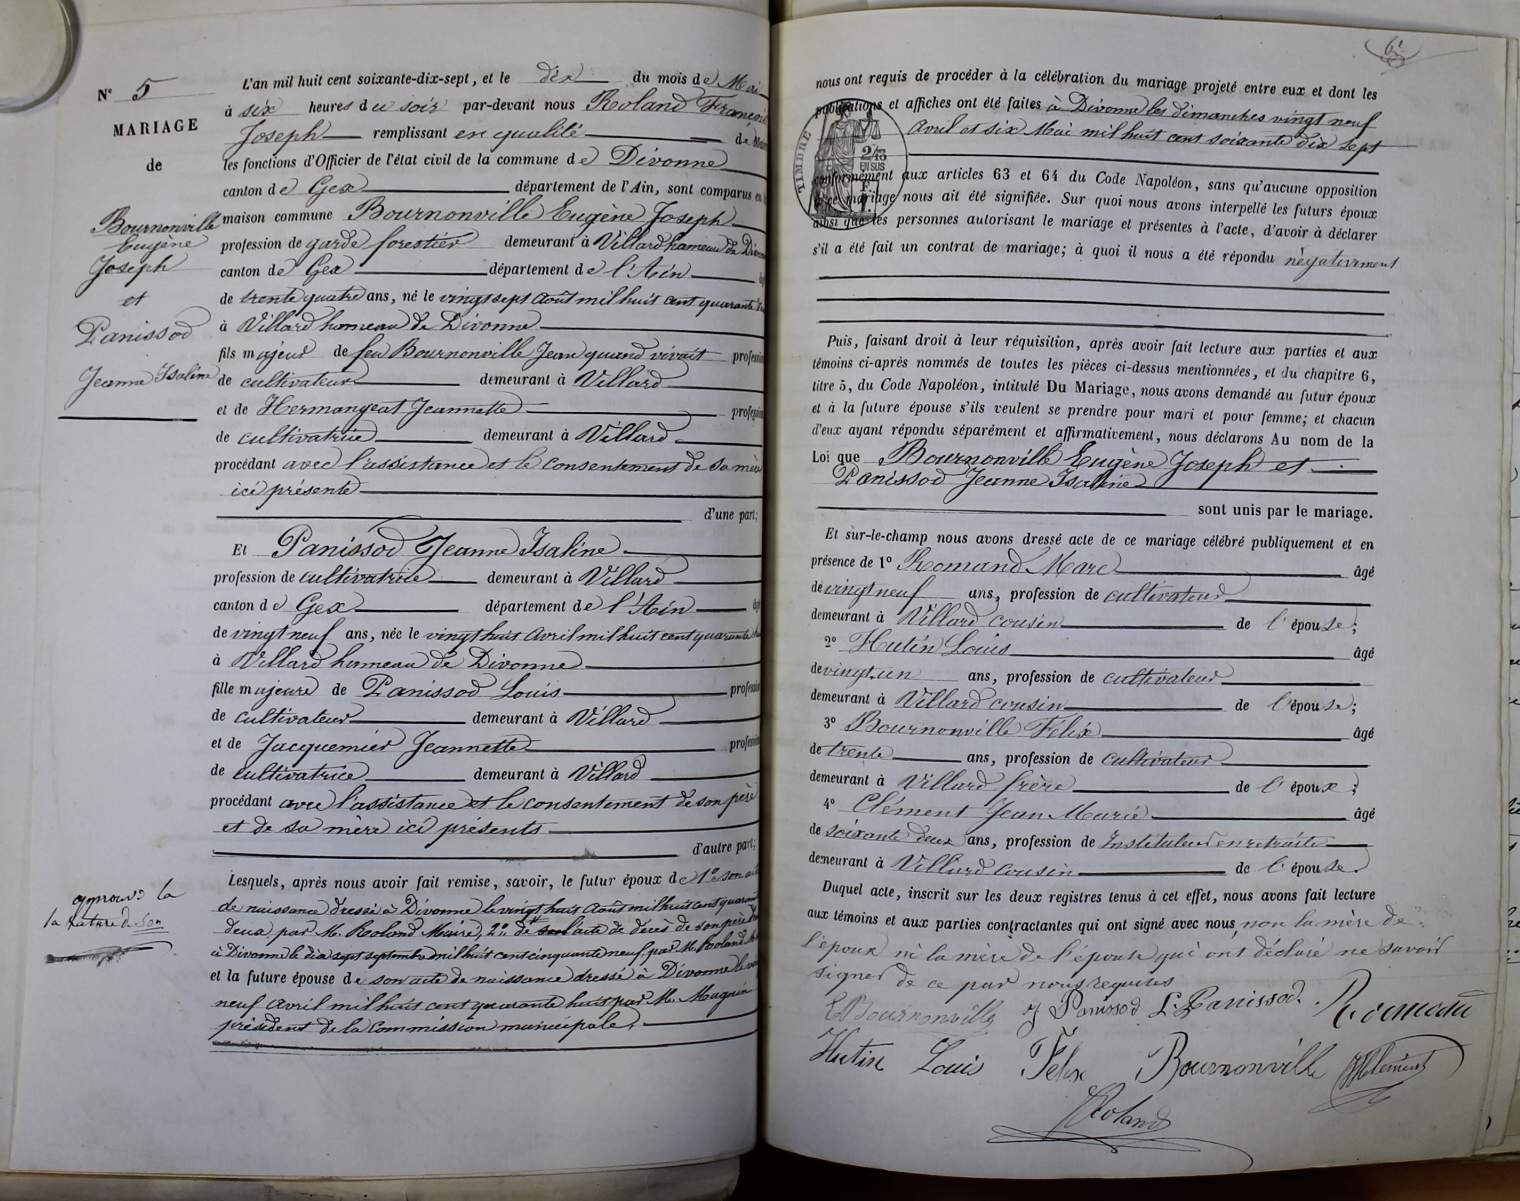 N° 5
MARIAGE
de
Bournonville
Eugène
Joseph
et
Panissod
Jeanne Isaline
L'an mil huit cent soixante-dix-sept, et le dix du mois de Mai
à six heures du soir par-devant nous Roland François
Joseph remplissant en qualité de Maire
les fonctions d'Officier de l'état civil de la commune de Divonne
canton de Gex département de l'Ain, sont comparus en la
maison commune Bournonville Eugène Joseph
profession de garde forestier demeurant à Villard hameau de Divonne
canton de Gex département de l'Ain âgé
de trente quatre ans, né le vingt sept août mil huit cent quarante deux
à Villard hameau de Divonne
fils majeur de feu Bournonville Jean quand vivait profession
de cultivateur demeurant à Villard
et de Hermangeat Jeannette profession
de cultivatrice demeurant à Villard
procédant avec l'assistance et le consentement de sa mère
ici présente
d'une part;
Et Panissod Jeanne Isaline
profession de cultivatrice demeurant à Villard
canton de Gex département de l'Ain âgé
de vingt neuf ans, née le vingt huit avril mil huit cent quarante huit
à Villard hameau de Divonne
fille majeure de Panissod Louis profession
de cultivateur demeurant à Villard
et de Jacquemier Jeannette profession
de cultivatrice demeurant à Villard
procédant avec l'assistance et le consentement de son père
et de sa mère ici présents
d'autre part;
Lesquels, après nous avoir fait remise, savoir, le futur époux de 1° son acte
de naissance dressé à Divonne le vingt huit août mil huit cent quarante
deux par M. Roland Maire, 2° de l'acte de décès de son père
à Divonne le dix sept septembre mil huit cent cinquante neuf par M. Roland
et la future épouse de son acte de naissance dressé à Divonne le vingt
neuf avril mil huit cent quarante huit par M. Magnin
président de la Commission municipale.
approuvé la
la rature de son
6e
nous ont requis de procéder à la célébration du mariage projeté entre eux et dont les
publications et affiches ont été faites à Divonne les dimanches vingt neuf
avril et six Mai mil huit cent soixante dix sept
TIMBRE
2/10
EN SUS
conformément aux articles 63 et 64 du Code Napoléon, sans qu'aucune opposition
à ce mariage nous ait été signifiée. Sur quoi nous avons interpellé les futurs époux
ainsi que les personnes autorisant le mariage et présentes à l'acte, d'avoir à déclarer
s'il a été fait un contrat de mariage; à quoi il nous a été répondu négativement
Puis, faisant droit à leur réquisition, après avoir fait lecture aux parties et aux
témoins ci-après nommés de toutes les pièces ci-dessus mentionnées, et du chapitre 6,
titre 5, du Code Napoléon, intitulé Du Mariage, nous avons demandé au futur époux
et à la future épouse s'ils veulent se prendre pour mari et pour femme; et chacun
d'eux ayant répondu séparément et affirmativement, nous déclarons Au nom de la
Loi que Bournonville Eugène Joseph et
Panissod Jeanne Isaline
sont unis par le mariage.
Et sur-le-champ nous avons dressé acte de ce mariage célébré publiquement et en
présence de 1° Romand Marc âgé
de vingt neuf ans, profession de cultivateur
demeurant à Villard cousin de l'épouse;
2° Hutin Louis âgé
de vingt un ans, profession de cultivateur
demeurant à Villard cousin de l'épouse;
3° Bournonville Félix âgé
de trente ans, profession de cultivateur
demeurant à Villard frère de l'époux;
4° Clément Jean Marie âgé
de soixante deux ans, profession de Instituteur en retraite
demeurant à Villard cousin de l'épouse
Duquel acte, inscrit sur les deux registres tenus à cet effet, nous avons fait lecture
aux témoins et aux parties contractantes qui ont signé avec nous, non la mère de
l'époux ni la mère de l'épouse qui ont déclaré ne savoir
signer de ce par nous requises
E Bournonville J Panissod L. Panissod. Romand
Hutin Louis Félix Bournonville JM Clément
Roland